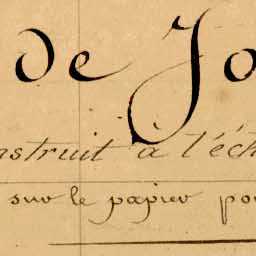 de Jo
nstruit à l'éch
sur le papier po